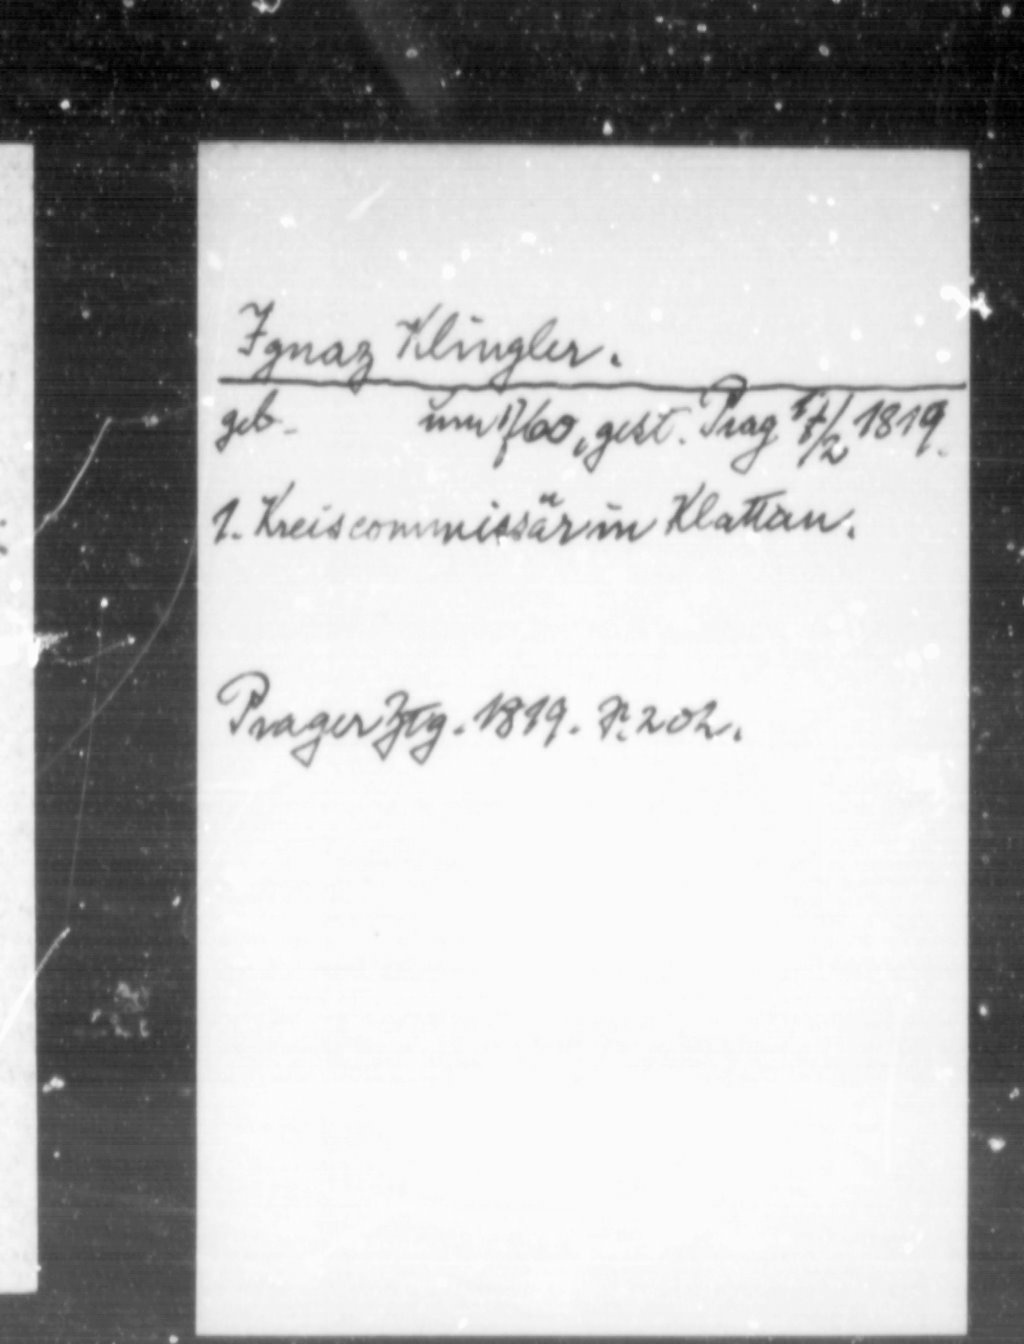 Ignaz Klingler.
geb. um 1760, gest. Prag 17/2 1819.
1. Kreiscommissär in Klattau.
Prager Ztg. 1819. P. 202.